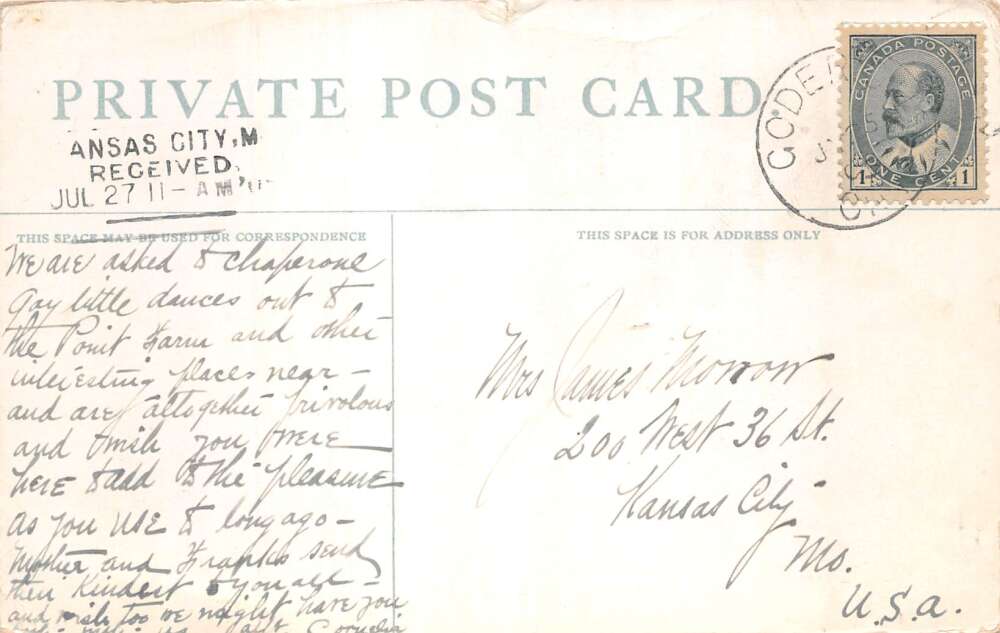 PRIVATE POST CARD
ANSAS CITY, M
RECEIVED
JUL 27 11-AM
CANADA POSTAGE
1 ONE CENT 1
GODER
THIS SPACE MAY BE USED FOR CORRESPONDENCE
We are asked to chaperone
gay little dances out to
the Point Farm and other
interesting places near –
and are altogether frivolous
and I wish you were
here to add to the pleasure
as you use to long ago –
Mother and Franks send
their kindest to you all –
and wish too we might have you
Cornelia
THIS SPACE IS FOR ADDRESS ONLY
Mrs James Morrow
200 West 36 St.
Kansas City
Mo.
U.S.A.